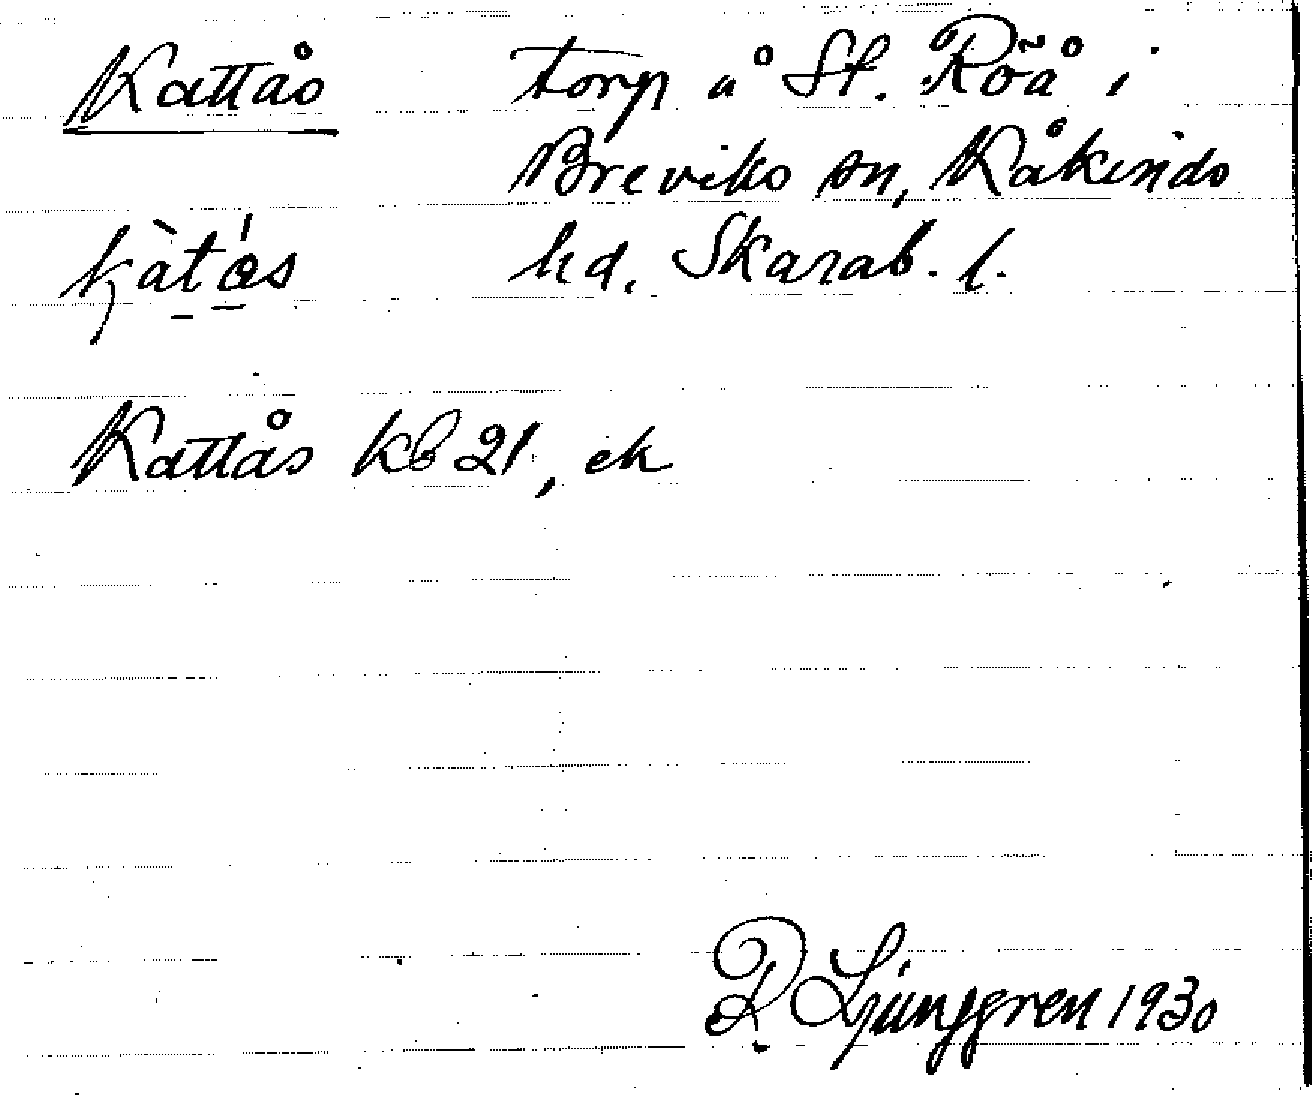 Kattås torp å St. Röå i
Breviks sn, Kåkinds
kàtá̱s hd. Skarab. l.
Kattås kb 21, ek
R Ljunggren 1930